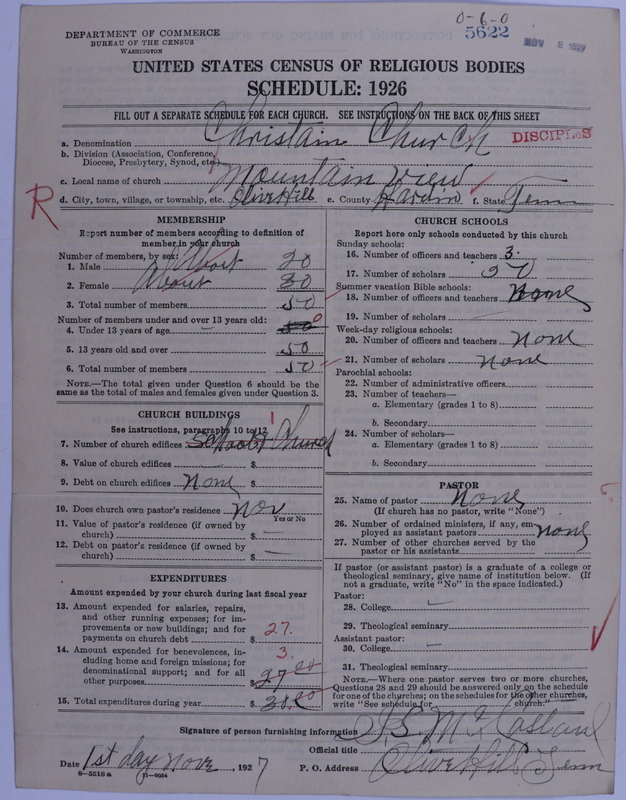 0-6-0
5622
NOV 8 1927
DEPARTMENT OF COMMERCE
BUREAU OF THE CENSUS
WASHINGTON
UNITED STATES CENSUS OF RELIGIOUS BODIES
SCHEDULE: 1926
FILL OUT A SEPARATE SCHEDULE FOR EACH CHURCH. SEE INSTRUCTIONS ON THE BACK OF THIS SHEET
a. Denomination Christain Church DISCIPLES
b. Division (Association, Conference, Diocese, Presbytery, Synod, etc.)
c. Local name of church Mountain View
R
d. City, town, village, or township, etc. Olive Hill e. County Hardin f. State Tenn
MEMBERSHIP
Report number of members according to definition of member in your church
Number of members, by sex:
1. Male About 20
2. Female About 30
3. Total number of members 50
Number of members under and over 13 years old:
4. Under 13 years of age 0
5. 13 years old and over 50
6. Total number of members 50
NOTE.—The total given under Question 6 should be the same as the total of males and females given under Question 3.
CHURCH BUILDINGS
See instructions, paragraphs 10 to 12
7. Number of church edifices 1 Church
8. Value of church edifices $
9. Debt on church edifices None $
10. Does church own pastor's residence No
Yes or No
11. Value of pastor's residence (if owned by church) $
12. Debt on pastor's residence (if owned by church) $
EXPENDITURES
Amount expended by your church during last fiscal year
13. Amount expended for salaries, repairs, and other running expenses; for improvements or new buildings; and for payments on church debt $ 27.
14. Amount expended for benevolences, including home and foreign missions; for denominational support; and for all other purposes 3. $ 27.00
15. Total expenditures during year $ 30.00
CHURCH SCHOOLS
Report here only schools conducted by this church
Sunday schools:
16. Number of officers and teachers 3.
17. Number of scholars 20
Summer vacation Bible schools:
18. Number of officers and teachers None
19. Number of scholars
Week-day religious schools:
20. Number of officers and teachers None
21. Number of scholars None
Parochial schools:
22. Number of administrative officers
23. Number of teachers—
a. Elementary (grades 1 to 8)
b. Secondary
24. Number of scholars—
a. Elementary (grades 1 to 8)
b. Secondary
PASTOR
25. Name of pastor None
(If church has no pastor, write "None")
26. Number of ordained ministers, if any, employed as assistant pastors none
27. Number of other churches served by the pastor or his assistants
If pastor (or assistant pastor) is a graduate of a college or theological seminary, give name of institution below. (If not a graduate, write "No" in the space indicated.)
Pastor:
28. College
29. Theological seminary
Assistant pastor:
30. College
31. Theological seminary
NOTE.—Where one pastor serves two or more churches, Questions 28 and 29 should be answered only on the schedule for one of the churches; on the schedules for the other churches, write "See schedule for church."
Signature of person furnishing information
Official title
Date 1st day Nove, 1927 P. O. Address Olive Hill Tenn
8-5518a 11-9034